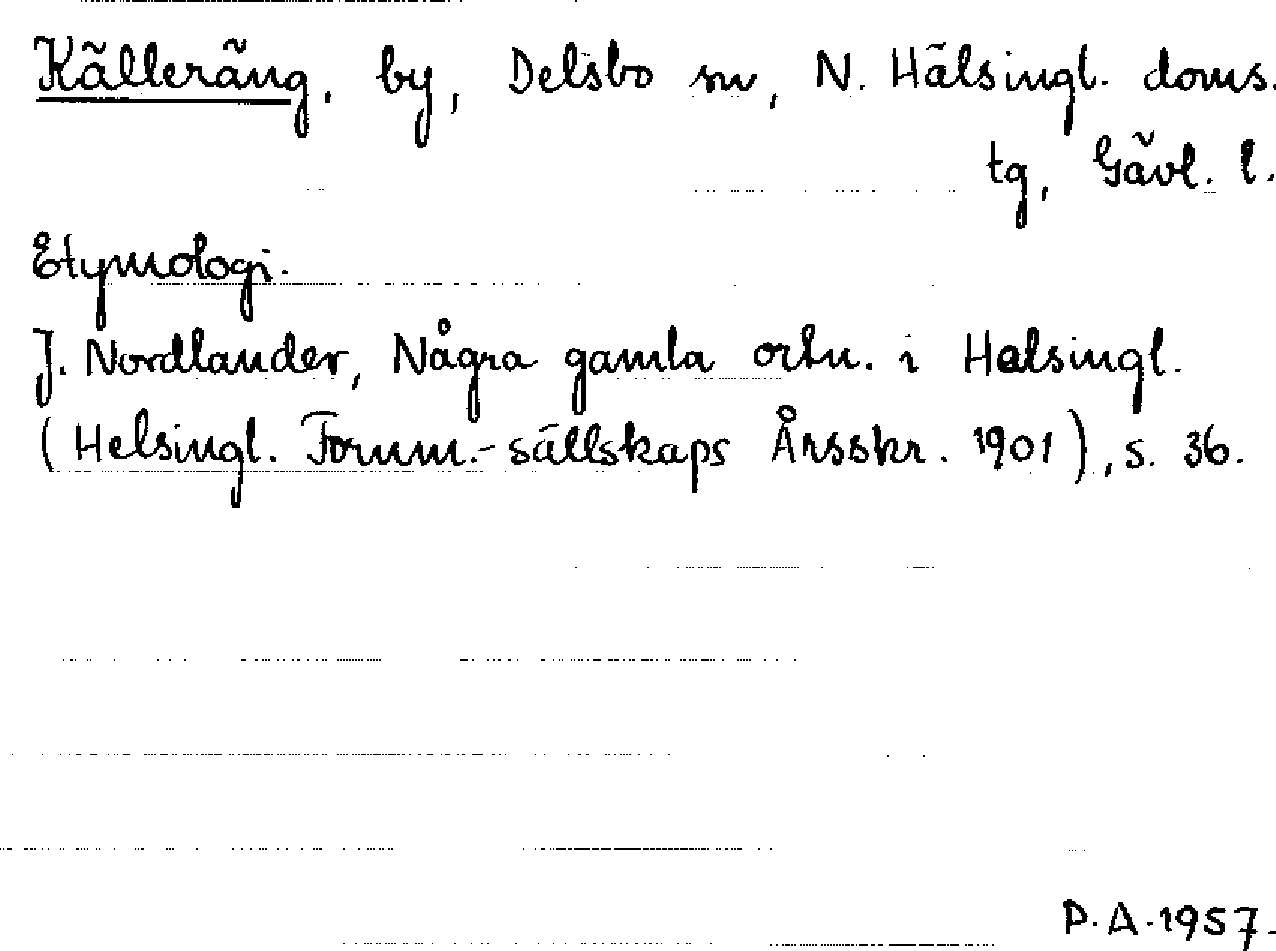 Källeräng, by, Delsbo sn, N. Hälsingl. doms.
tg, Gävl. l.
Etymologi.
J. Nordlander, Några gamla ortn. i Helsingl.
(Helsingl. Fornm.-sällskaps Årsskr. 1901), s. 36.
P.A. 1957.